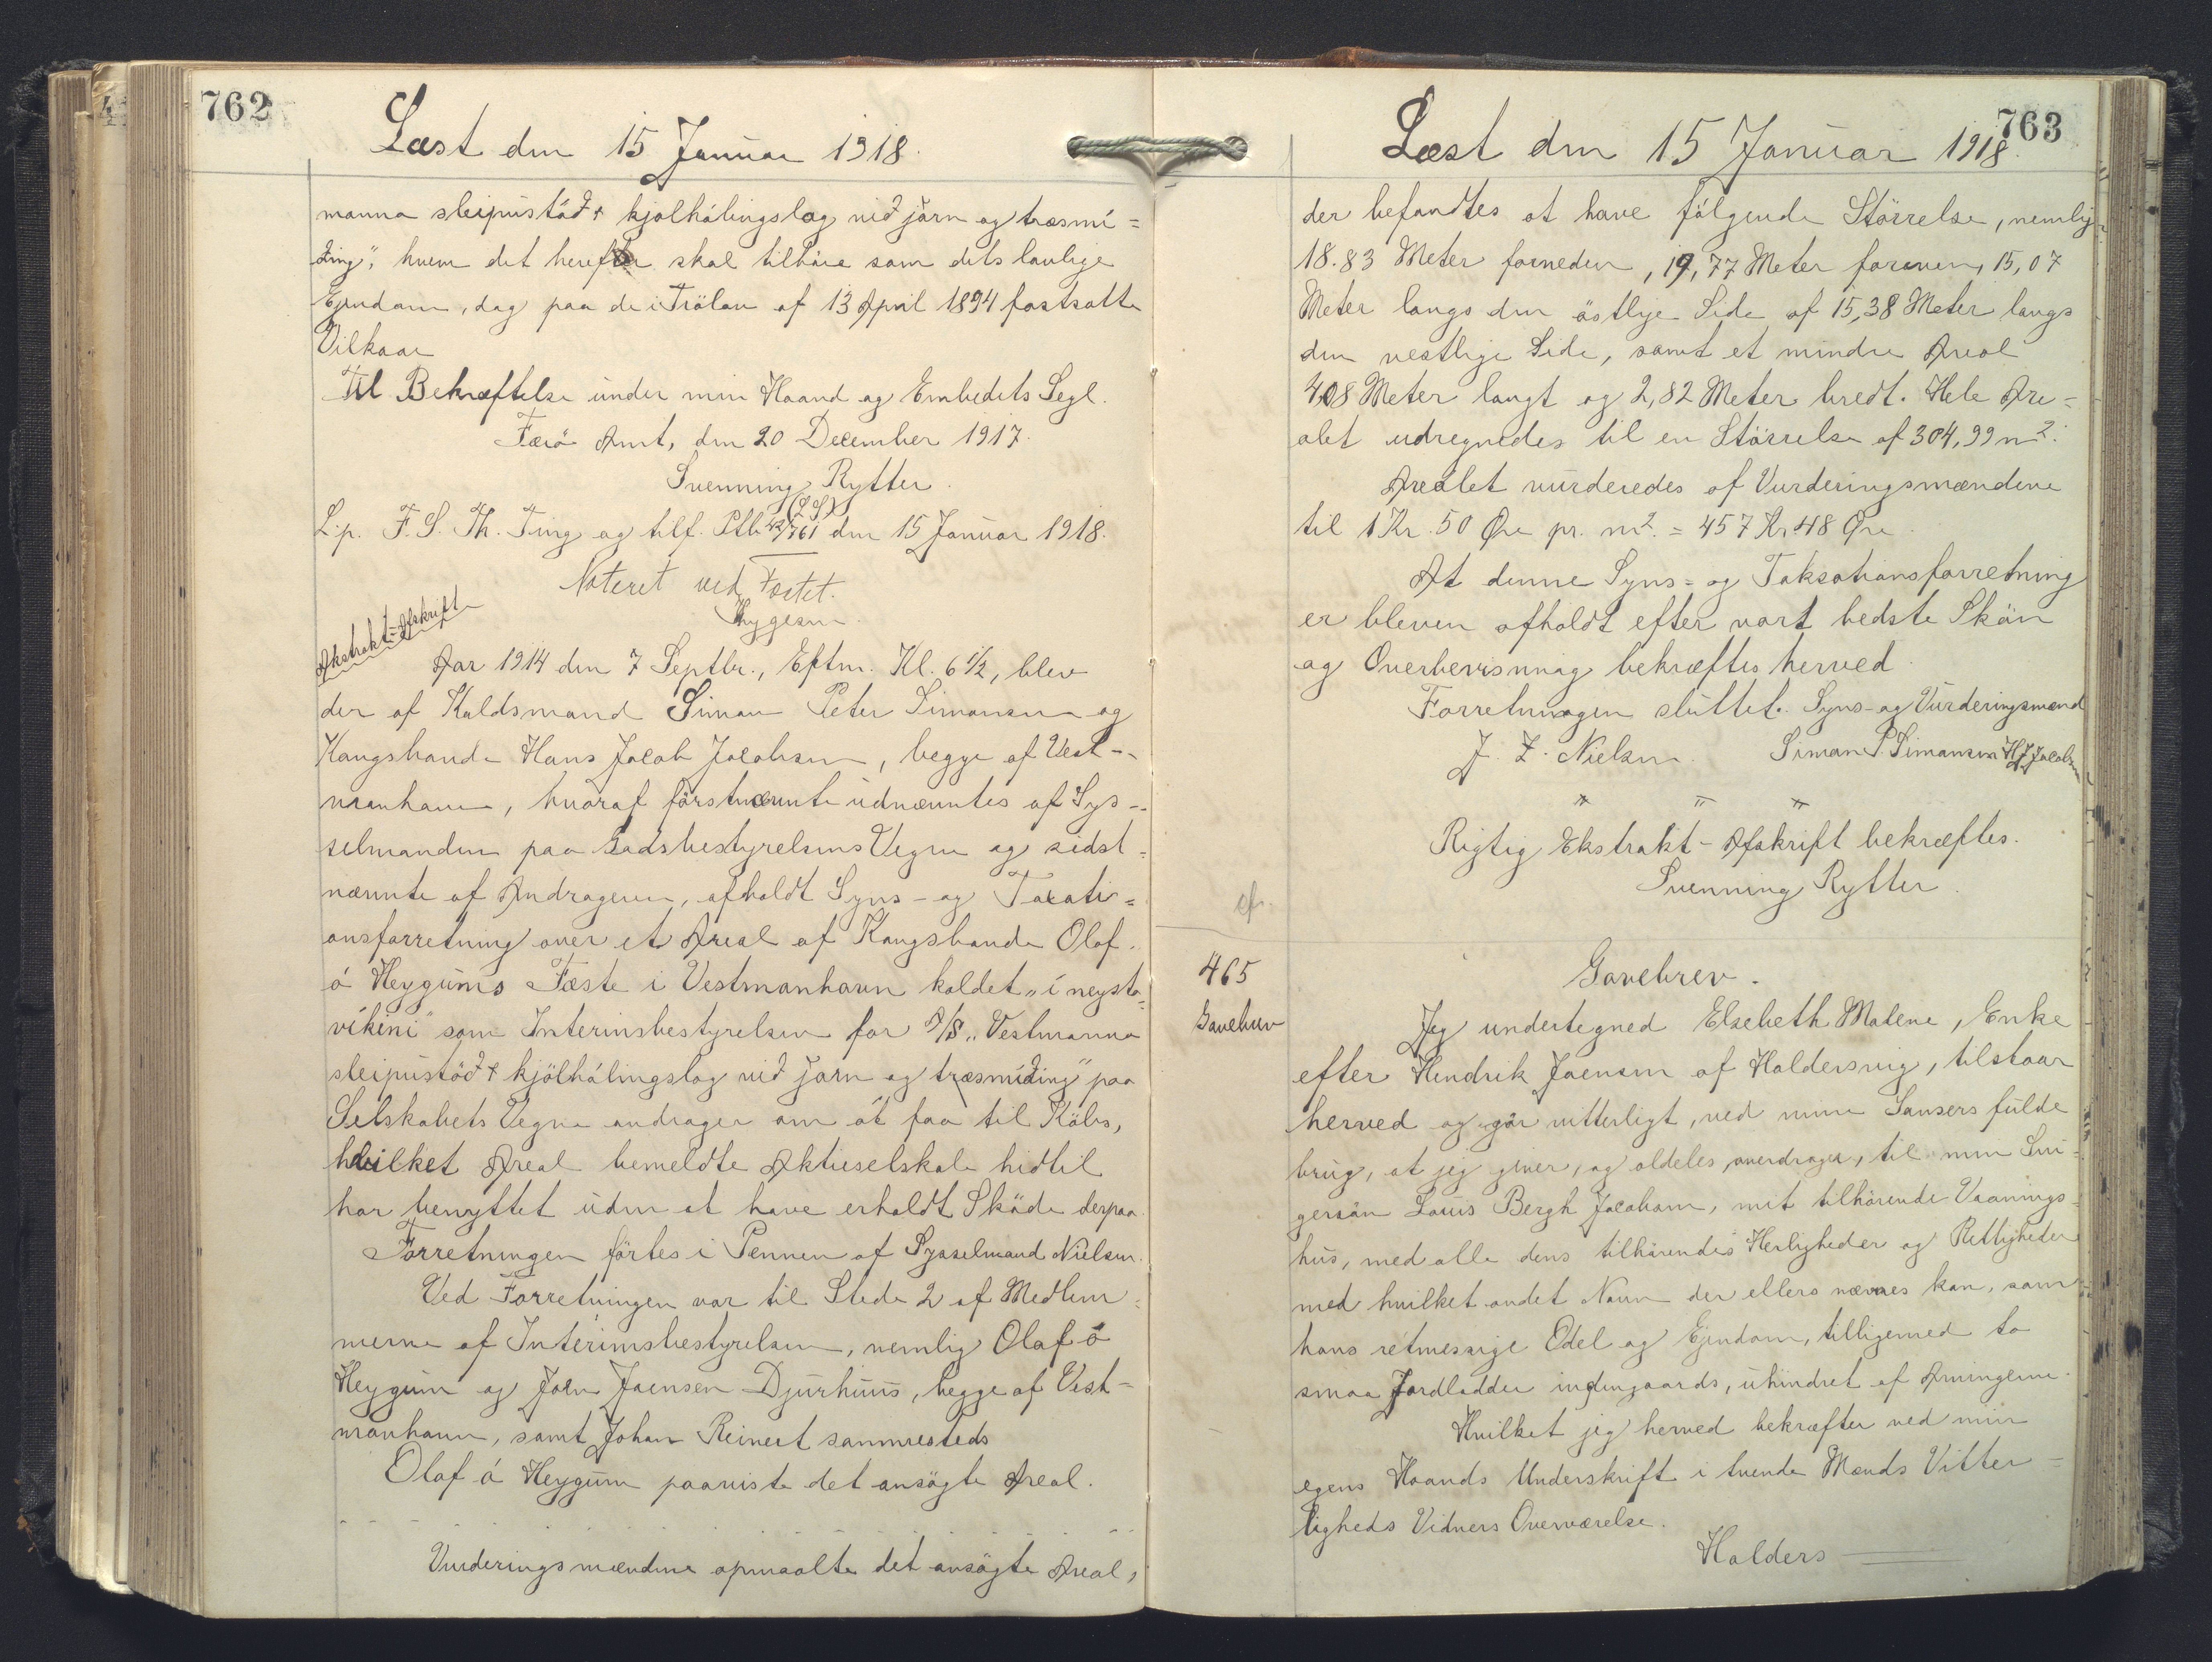 762
Læst den 15 Januar 1918.
manna sleipistöð & kjølhálingslag við jarn og træsmi=
ðing", hvem det herefter skal tilhøre som dets lovlige
Ejendom, dog paa de i Frölov af 13 April 1894 fastsatte
Vilkaar
Til Bekræftelse under min Haand og Embedets Segl.
Færö Amt, den 20 December 1917.
Svenning Rytter.
(LS)
L. p. F. S. Th. Ting og tilf. Ptb. 42/761 den 15 Januar 1918.
Noteret ved Fæstet.
Thygesen
Ekstrakt-Afskrift
Aar 1914 den 7 Septbr., Eftm. Kl. 6 1/2, blev
der af Kaldsmand Simon Peter Simonsen og
Kongsbonde Hans Jacob Jacobsen, begge af Vest-
manhavn, hvoraf førstnævnte udnævntes af Sys-
selmanden paa Godsbestyrelsens Vegne og sidst=
nævnte af Andrageren, afholdt Syns- og Taxati=
onsforretning over et Areal af Kongsbonde Olaf
á Heygums Fæste i Vestmanhavn kaldet „í neysta=
víkini" som Interimsbestyrelsen for A/S „Vestmanna
sleipistöð & kjölhálingslag við jarn og træsmiðing" paa
Selskabets Vegne andrager om at faa til Köbs,
hvilket Areal bemeldte Aktieselskab hidtil
har benyttet uden at have erholdt Sköde derpaa.
Forretningen förtes i Pennen af Sysselmand Nielsen.
Ved Forretningen var til Stede 2 af Medlem=
merne af Interimsbestyrelsen, nemlig Olaf á
Heygum og Joen Joensen Djurhuus, begge af Vest-
manhavn, samt Johan Reinert sammesteds
Olaf á Heygum paaviste det ansögte Areal.
- - - - - - - - - - - -
Vurderingsmændene opmaalte det ansögte Areal,
763
Læst den 15 Januar 1918.
der befandtes at have fölgende Störrelse, nemlig
18.83 Meter forneden, 19,77 Meter foroven, 15,07
Meter langs den östlige Side af 15,38 Meter langs
den vestlige Side, samt et mindre Areal
4,08 Meter langt og 2,82 Meter bredt. Hele Are=
alet udregnedes til en Störrelse af 304,99 m2.
Arealet vurderedes af Vurderingsmændene
til 1 Kr. 50 Øre pr. m2. = 457 Kr. 48 Øre
At denne Syns= og Taksationsforretning
er bleven afholdt efter vort bedste Skön
og Overbevisning bekræftes herved.
Forretningen sluttet. Syns- og Vurderingsmænd
J. Z. Nielsen. Siman P. Simonsen H J Jacobsen
" " "
Rigtig Ekstrakt-Afskrift bekræftes.
Svenning Rytter.
cf.
465
Gavebrev
Gavebrev.
Jeg undertegned Elsebeth Malene, Enke
efter Hendrik Joensen af Haldersvig, tilstaar
herved og gör vitterligt, ved mine Sansers fulde
brug, at jeg giver, og aldeles overdrager, til min Svi=
gersön Louis Bergh Jacobsen, mit tilhörende Vaanings=
hus, med alle dens tilhörendes Herligheder og Rettigheder
med hvilket andet Navn der ellers nævnes kan, som
hans retmessige Odel og Ejendom, tilligemed to
smaa Jordladder indengaards, uhindret af Arvingerne.
Hvilket jeg herved bekræfter ved min
egens Haands Underskrift i tvende Mands Vitter=
ligheds Vidners Overværelse.
Halders